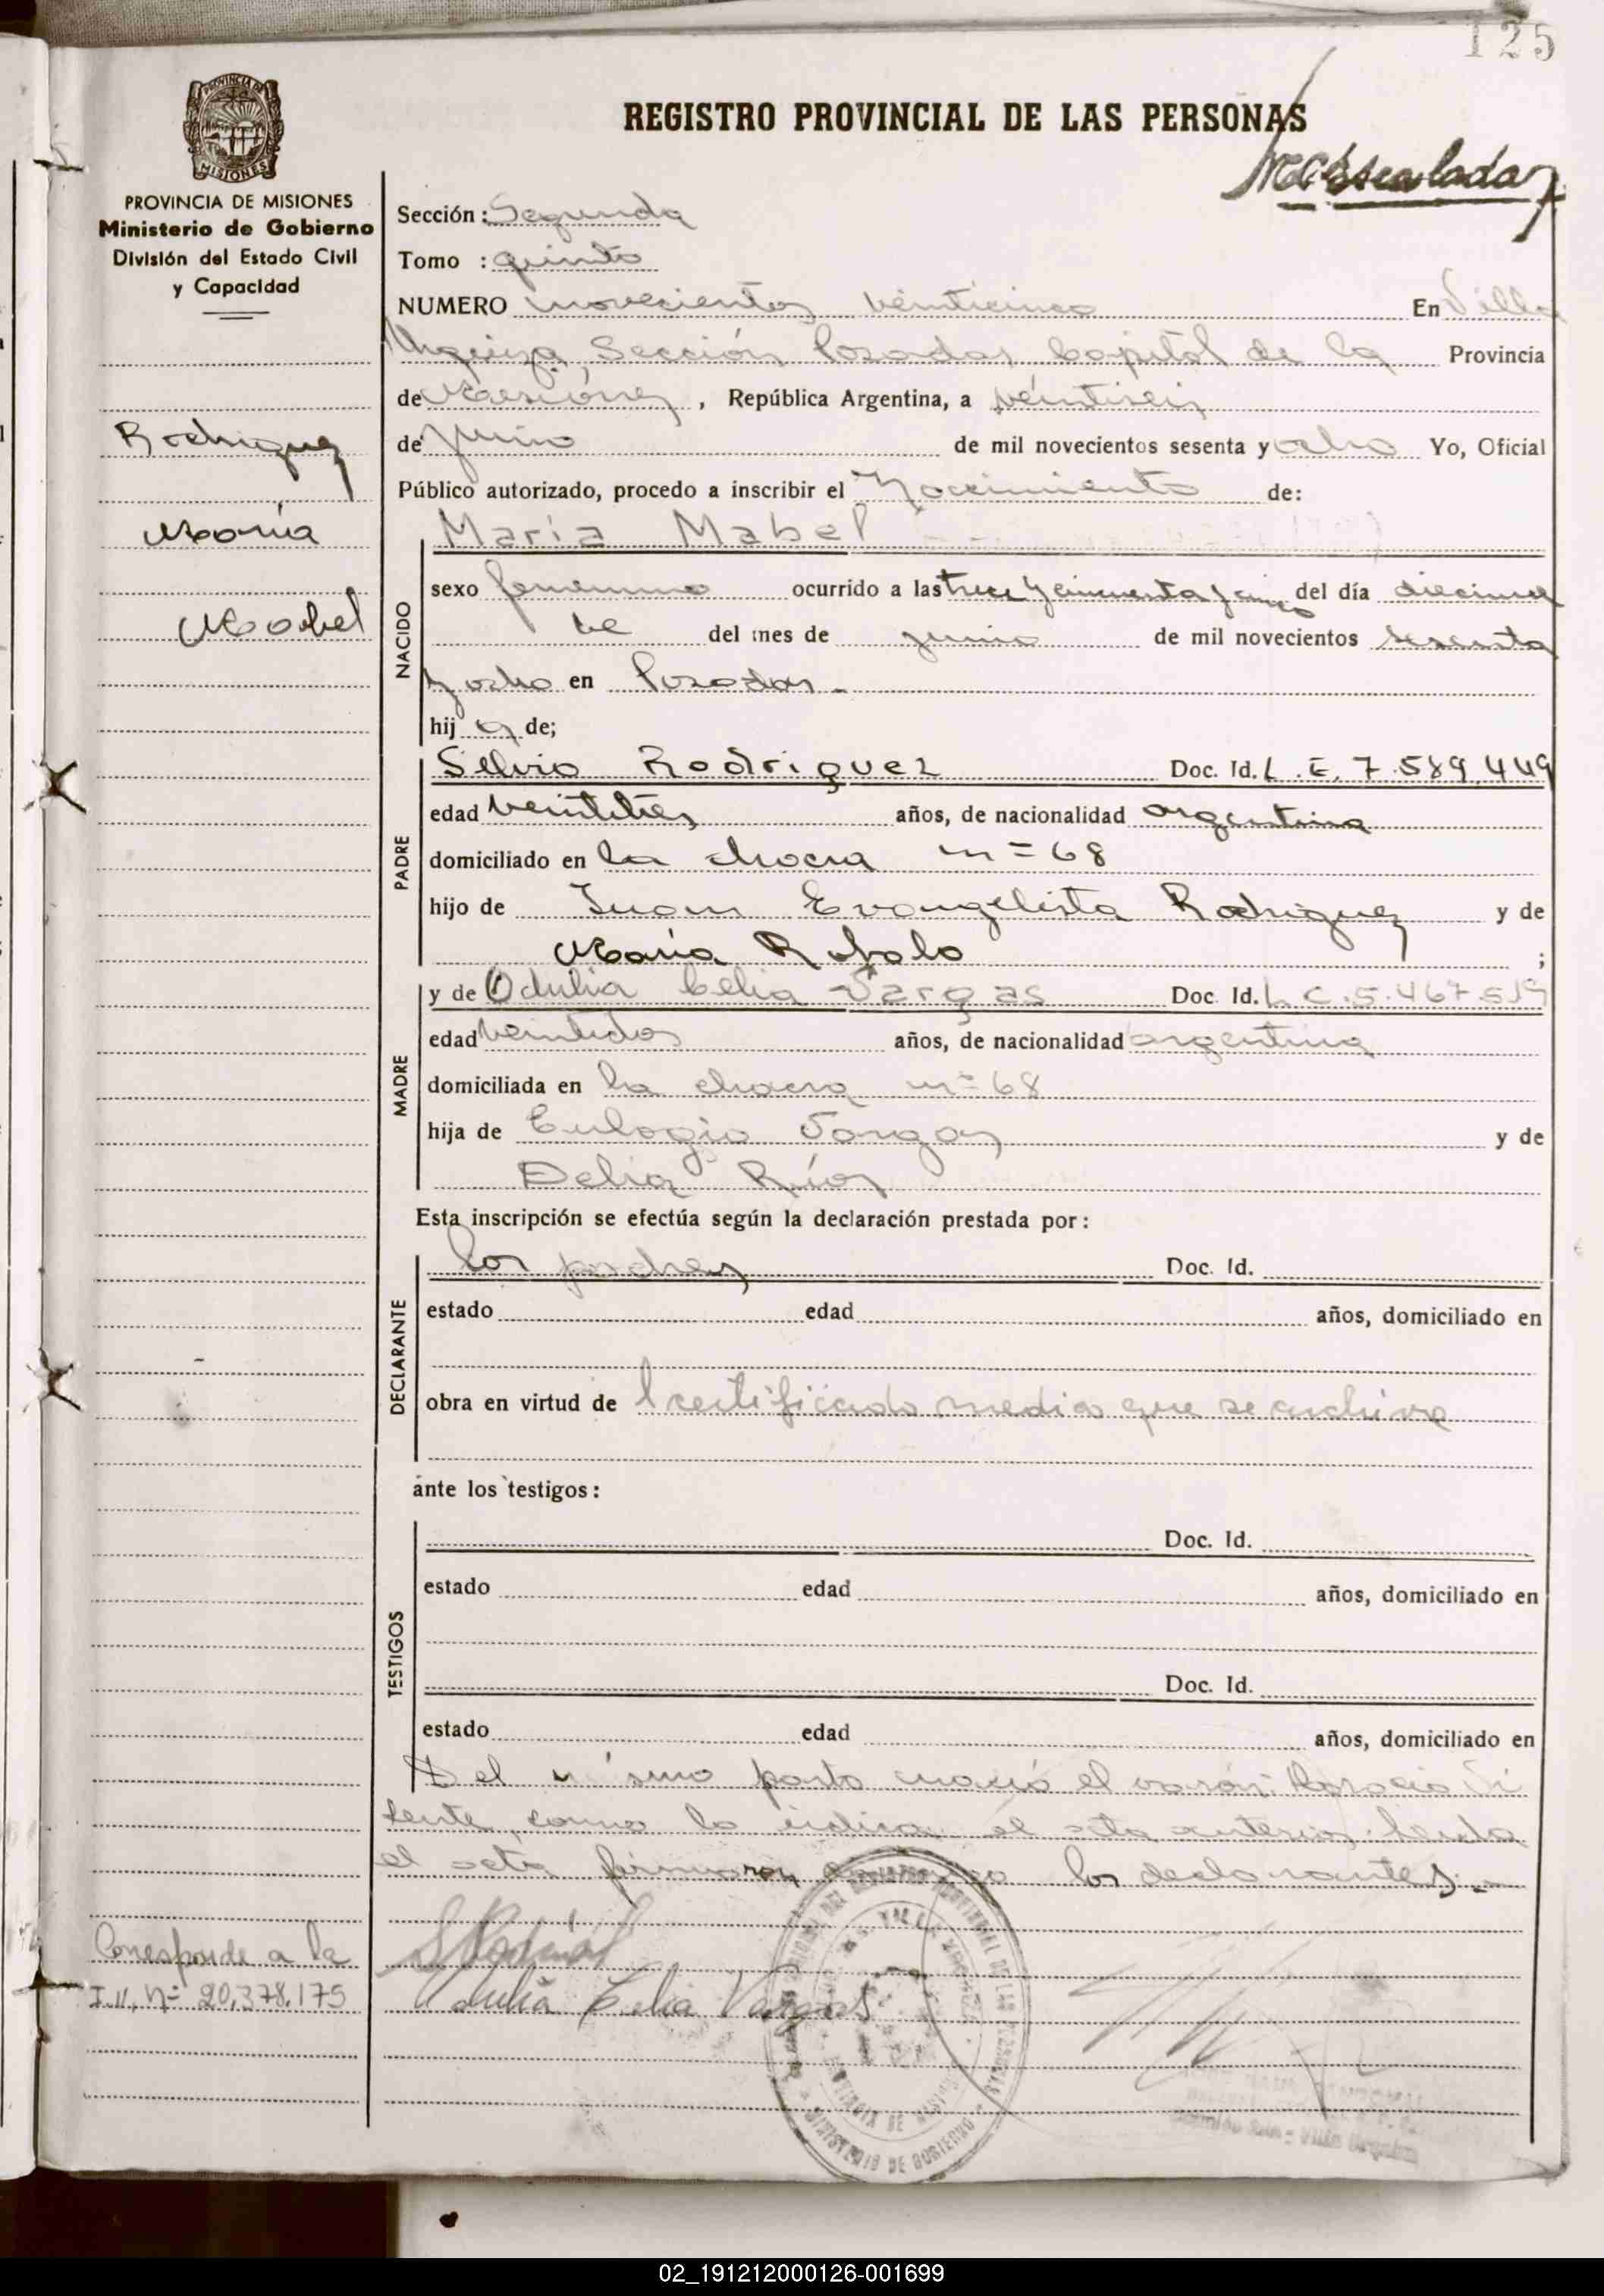 125
REGISTRO PROVINCIAL DE LAS PERSONAS
PROVINCIA DE MISIONES
MISIONES
PROVINCIA DE MISIONES
Ministerio de Gobierno
División del Estado Civil
y Capacidad
Rodriguez
María
Mabel
Corresponde a la
I.U. Nº 20.378.175
Sección: Segunda
Tomo : quinto
NUMERO novecientos veinticinco En Villa
Urquiza, Sección Posadas Capital de la Provincia
de Misiones, República Argentina, a veintiseis
de junio de mil novecientos sesenta y ocho Yo, Oficial
Público autorizado, procedo a inscribir el Nacimiento de:
María Mabel
NACIDO
sexo femenino ocurrido a las trece y cincuenta y cinco del día diecinue
ve del mes de junio de mil novecientos sesenta
y ocho en Posadas.
hij a de;
PADRE
Silvio Rodriguez Doc. Id. L.E. 7.589.449
edad veintitres años, de nacionalidad argentina
domiciliado en la chacra nº 68
hijo de Juan Evangelista Rodriguez y de
María Robalo ;
MADRE
y de Odulia Celia Vargas Doc. Id. L.C. 5.467.519
edad veintidos años, de nacionalidad argentina
domiciliada en la chacra nº 68
hija de Eulogio Vargas y de
Delia Ríos
Esta inscripción se efectúa según la declaración prestada por:
DECLARANTE
los padres Doc. Id.
estado edad años, domiciliado en
obra en virtud de certificado medico que se archiva
ante los testigos:
TESTIGOS
Doc. Id.
estado edad años, domiciliado en
Doc. Id.
estado edad años, domiciliado en
Del mismo parto nació el varón Horacio Vi
cente, como lo indica el acta anterior. Leida
el acta firman conmigo los declarantes.
S Rodriguez
Odulia Celia Vargas
MINISTERIO DE GOBIERNO
02_191212000126-001699